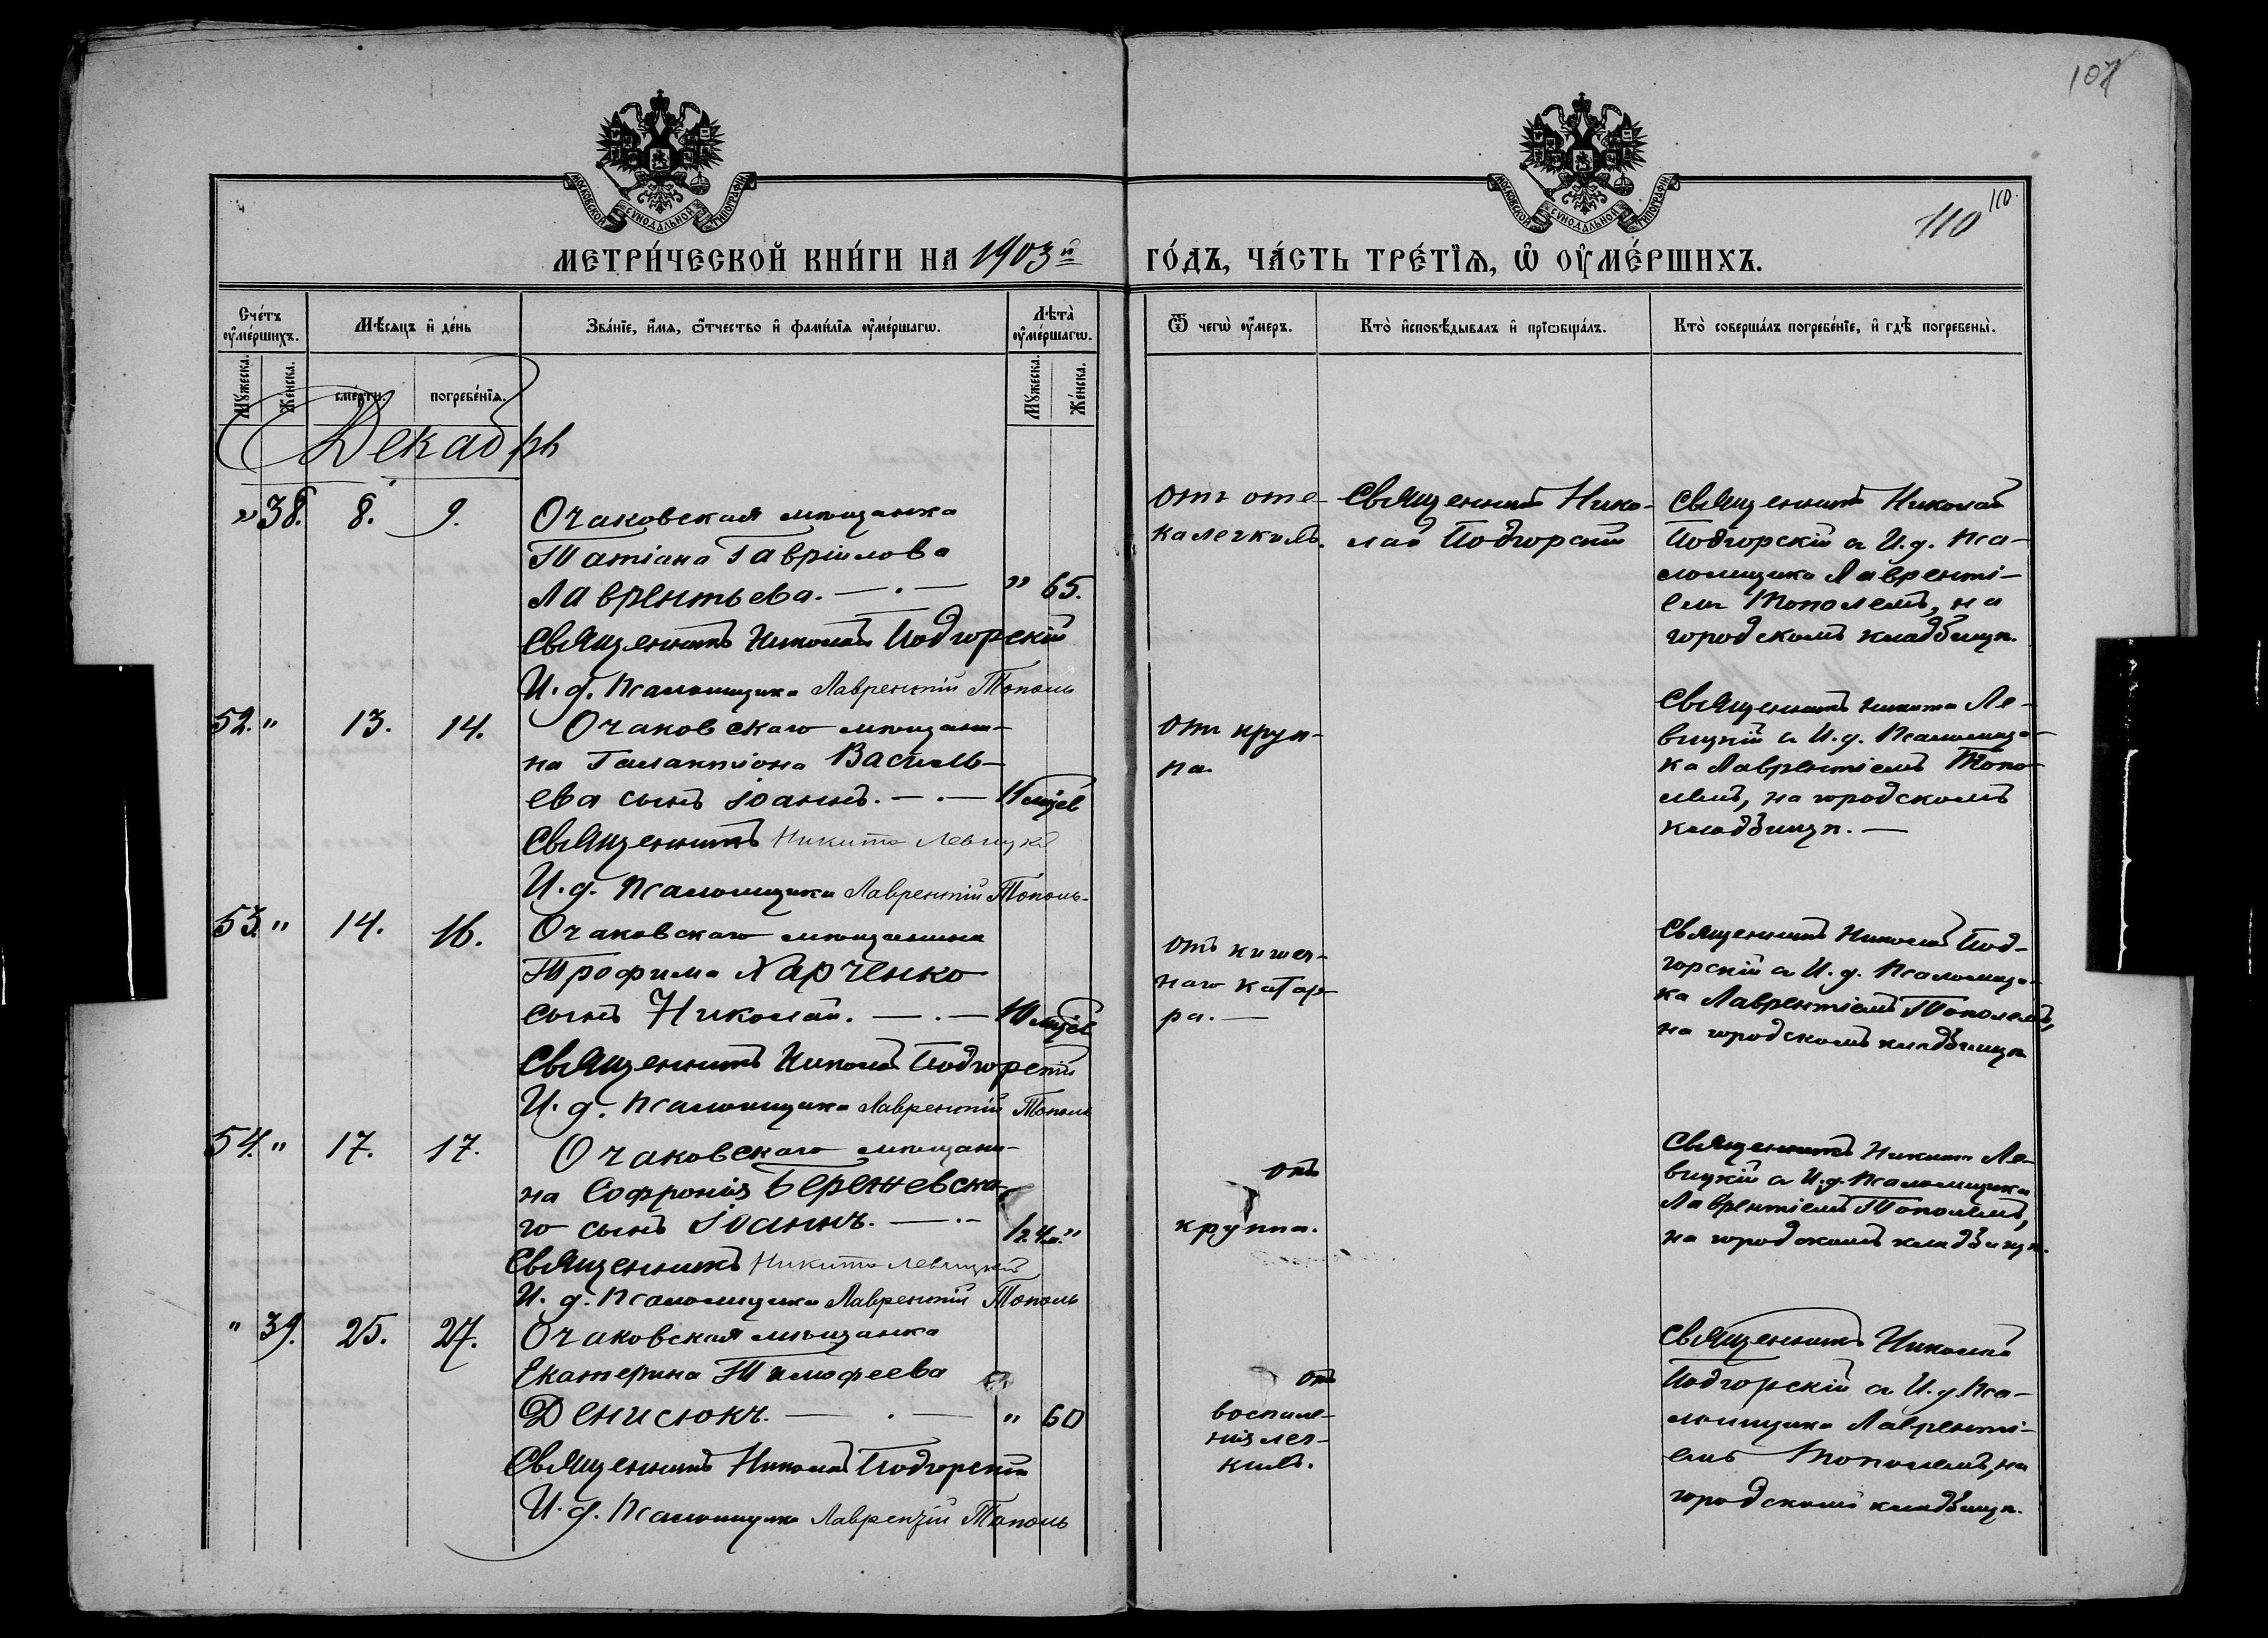 107
МОСКОВСКОЙ СУНОДАЛЬНОЙ ТИПОГРАФІИ
МОСКОВСКОЙ СУНОДАЛЬНОЙ ТИПОГРАФІИ
110
110.
МЕТРИ́ЧЕСКОЙ КНИ́ГИ НА 1903й
ГО́ДЪ, ЧА́СТЬ ТРЕ́ТЇѦ, Ѡ҆ ОУ҆МЕ́РШИХЪ.
Сче́тъ оу҆ме́ршихъ.
Мѣ́сяцъ и҆ де́нь
Зва́нїе, и҆́мѧ, ѻ҆́тчество и҆ фами́лїѧ оу҆ме́ршагѡ.
Лѣ́та̀ оу҆ме́ршагѡ.
Ѿ чегѡ̀ оу҆́меръ.
Кто̀ и҆сповѣ́дывалъ и҆ прїѡбща́лъ.
Кто̀ соверша́лъ погребе́нїе, и҆ гдѣ̀ погребены̀.
Мꙋ́жеска.
Же́нска.
сме́рти.
погребе́нїѧ.
Мꙋ́жеска.
Же́нска.
Декабрь
" 38. 8. 9.
Очаковская мѣщанка
Татіана Гавріилова
Лаврентьева. — . — " 65.
Священникъ Николай Подгорскій
И. д. Псаломщика Лаврентій Тополь
отъ оте-
ка легкихъ.
Священникъ Нико-
лай Подгорскій
Священникъ Николай
Подгорскій съ И. д. Пса-
ломщика Лаврентi-
емъ Тополемъ, на
городскомъ кладбищѣ.
52. " 13. 14.
Очаковскаго мѣщани-
на Галактіона Василь-
ева сынъ Іоаннъ. — . — 11 мцев
Священникъ Никита Левицкій
И. д. Псаломщика Лаврентій Тополь
отъ круп-
па.
Священникъ Никита Ле-
вицкій съ И. д. Псаломщи-
ка Лаврентіемъ Топо-
лемъ, на городскомъ
кладбищѣ. —
53. " 14. 16.
Очаковскаго мѣщанина
Трофима Харченко
сынъ Николай. — . — 10 мцев
Священникъ Николай Подгорскій
И. д. Псаломщика Лаврентій Тополь
отъ кишеч-
наго катар-
ра. —
Священникъ Николай Под-
горскій съ И. д. Псаломщи-
ка Лаврентіемъ Тополемъ,
на городскомъ кладбищѣ
54. " 17. 17.
Очаковскаго мѣщани-
на Софронія Бережевска-
го сынъ Іоаннъ. — . — 1г. 4м. "
Священникъ Никита Левицкій
И. д. Псаломщика Лаврентій Тополь
отъ
круппа.
Священникъ Никита Ле-
вицкій съ И. д. Псаломщика
Лаврентіемъ Тополемъ,
на городскомъ кладбищѣ.
" 39. 25. 27.
Очаковская мѣщанка
Екатерина Тимофеева
Денисюкъ. — . — " 60
Священникъ Николай Подгорскій
И. д. Псаломщика Лаврентій Тополь
отъ
воспале-
нія лег-
кихъ.
Священникъ Николай
Подгорскій съ И. д. Пса-
ломщика Лаврентi-
емъ Тополемъ, на
городскомъ кладбищѣ.